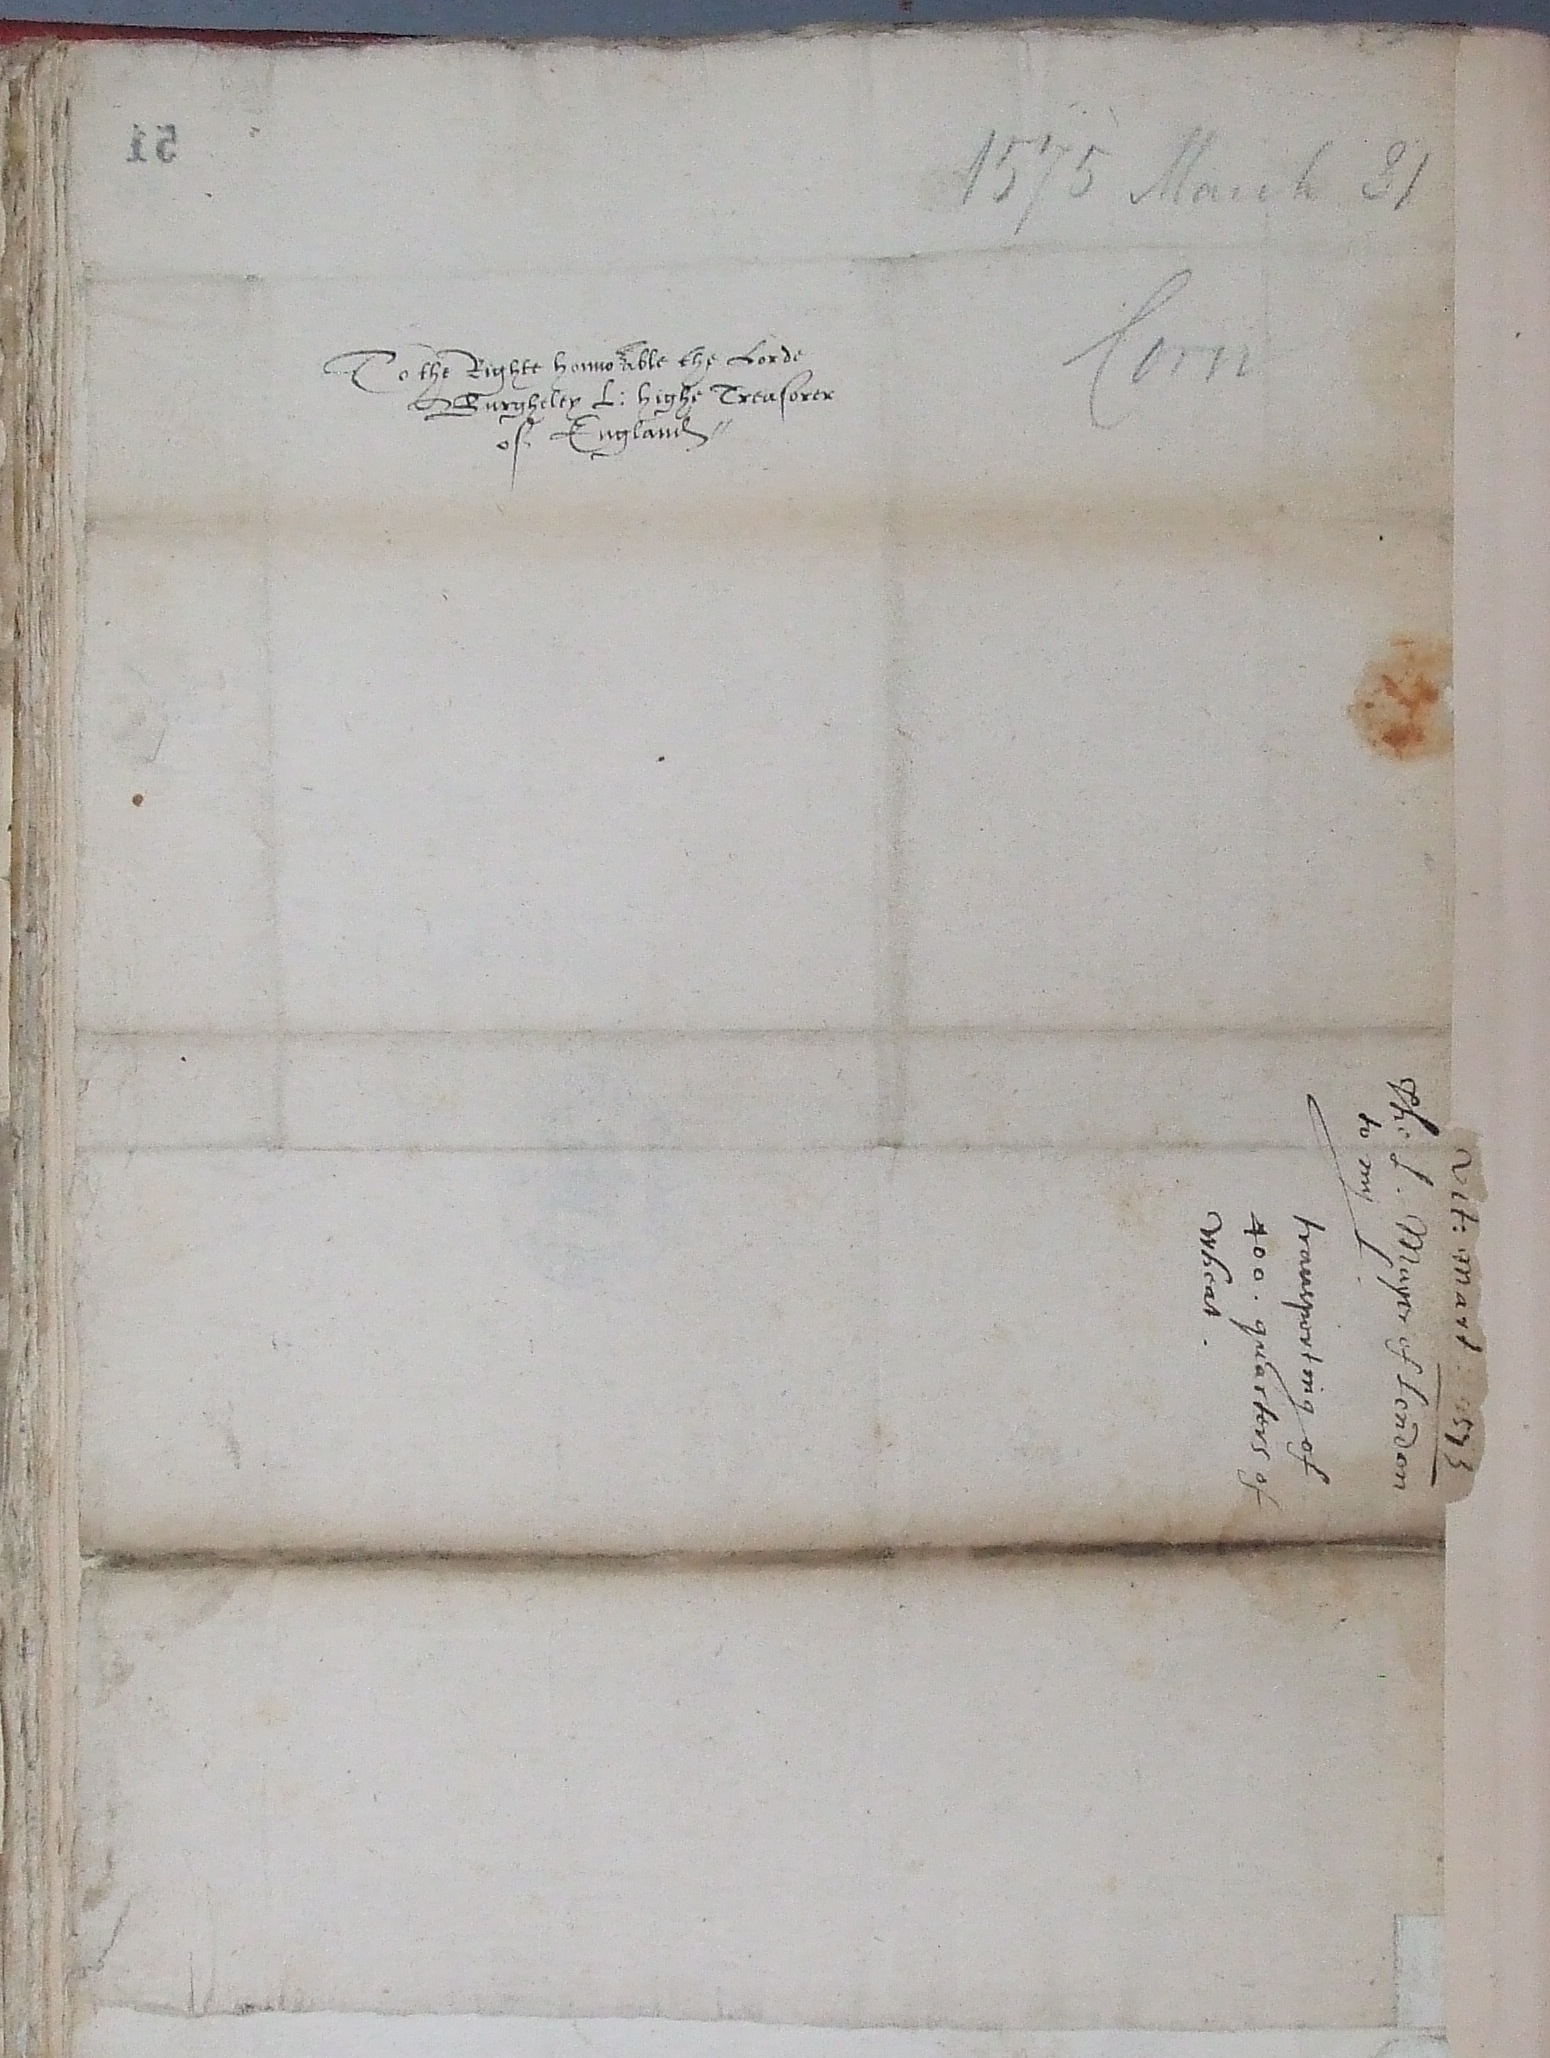 51
1575 March 21
Corn
To the Righte honno:able the Lorde
Burgheley L: highe Treasorer
of England
Vlt: Mart
the L. Mayor of London
to my L.
transporting of
400. quarters of
wheat.